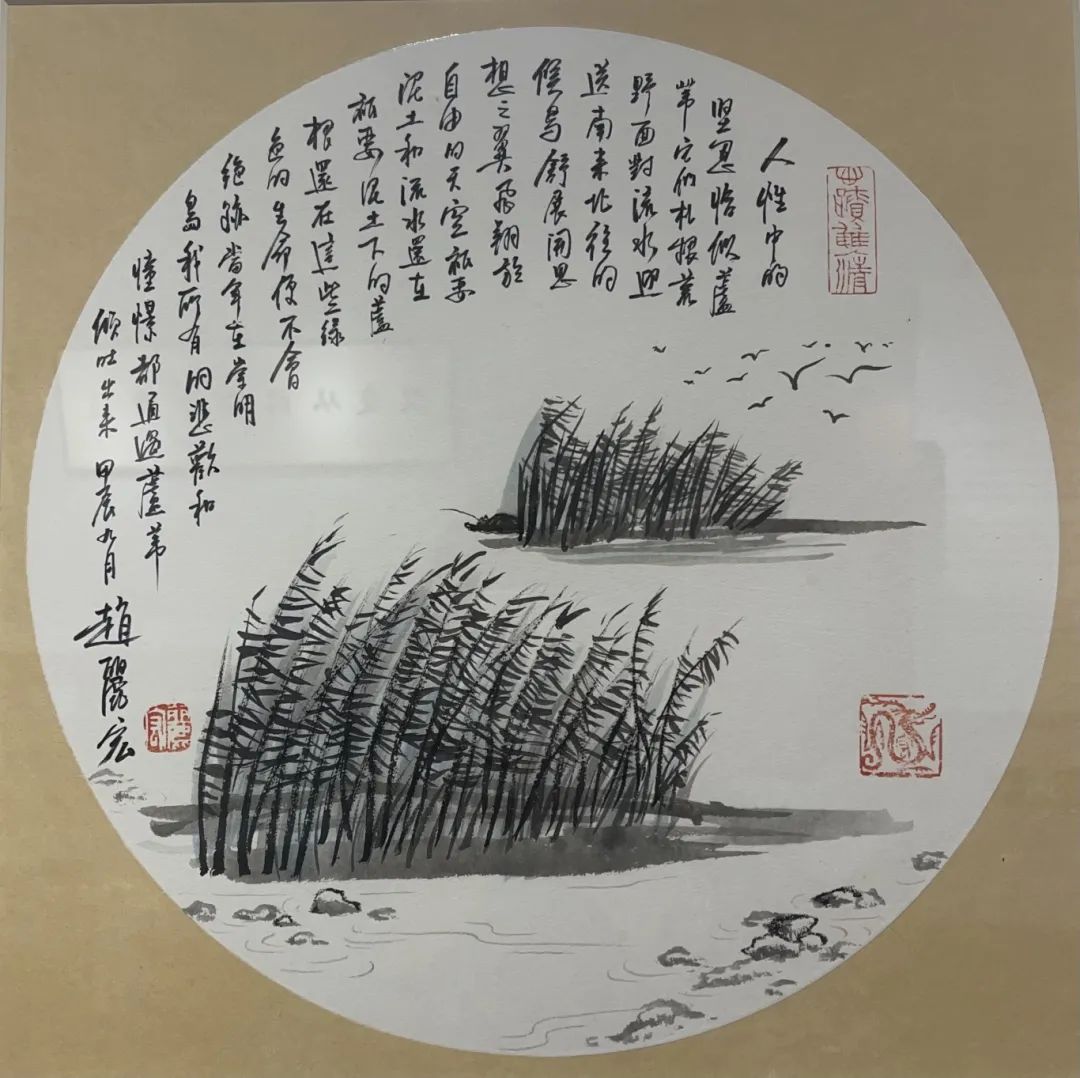 人性中的
坚忍恰似蘆
苇它们扎根荒
野面對流水迎
送南来北往的
候鸟舒展開思
想之翼飛翔於
自由的天空祗要
泥土和流水還在
祗要泥土下的蘆
根還在這些绿
色的生命便不會
绝跡當年在崇明
島我所有的悲歡和
憧憬都通過蘆苇
倾吐出来 甲辰九月
趙麗宏